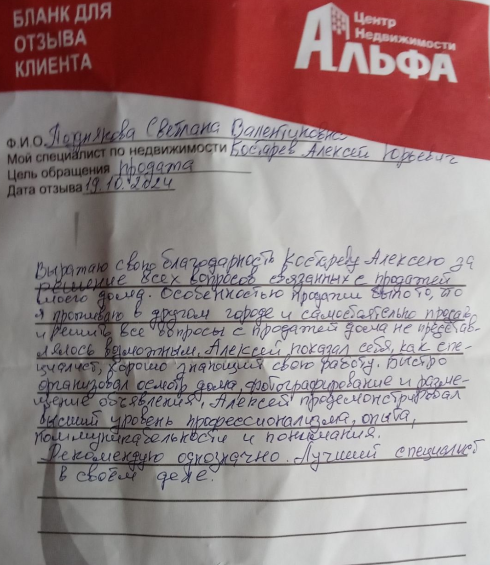 БЛАНК ДЛЯ
ОТЗЫВА
КЛИЕНТА
Центр
Недвижимости
АЛЬФА
Ф.И.О. Позднякова Светлана Валентиновна
Мой специалист по недвижимости Костарев Алексей Юрьевич
Цель обращения продажа
Дата отзыва 19.10.2024
Выражаю свою благодарность Костареву Алексею за
решение всех вопросов связанных с продажей
моего дома. Особенностью продажи было то, что
я проживаю в другом городе и самостоятельно
и решить все вопросы с продажей дома не представ-
лялось возможным. Алексей показал себя, как спе-
циалист, хорошо знающий свою работу. Быстро
организовал осмотр дома, фотографирование и разме-
щение объявления. Алексей продемонстрировал
высший уровень профессионализма, опыта,
коммуникабельности и понимания.
Рекомендую однозначно. Лучший специалист
в своём деле.